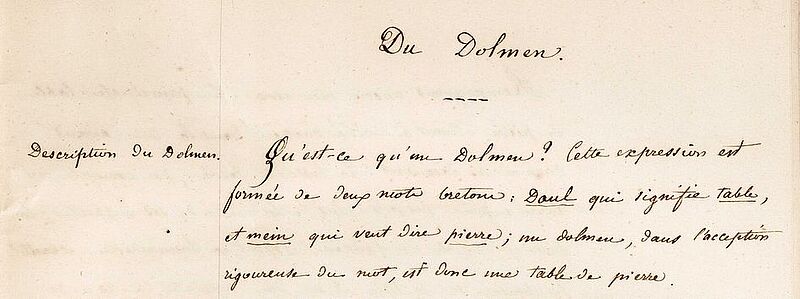 Du Dolmen.
Description du Dolmen.
Qu'est-ce qu'un Dolmen? Cette expression est
formée de deux mots bretons: Daul qui signifie table,
et mein qui veut dire pierre; un dolmen, dans l'acception
rigoureuse du mot, est donc une table de pierre.